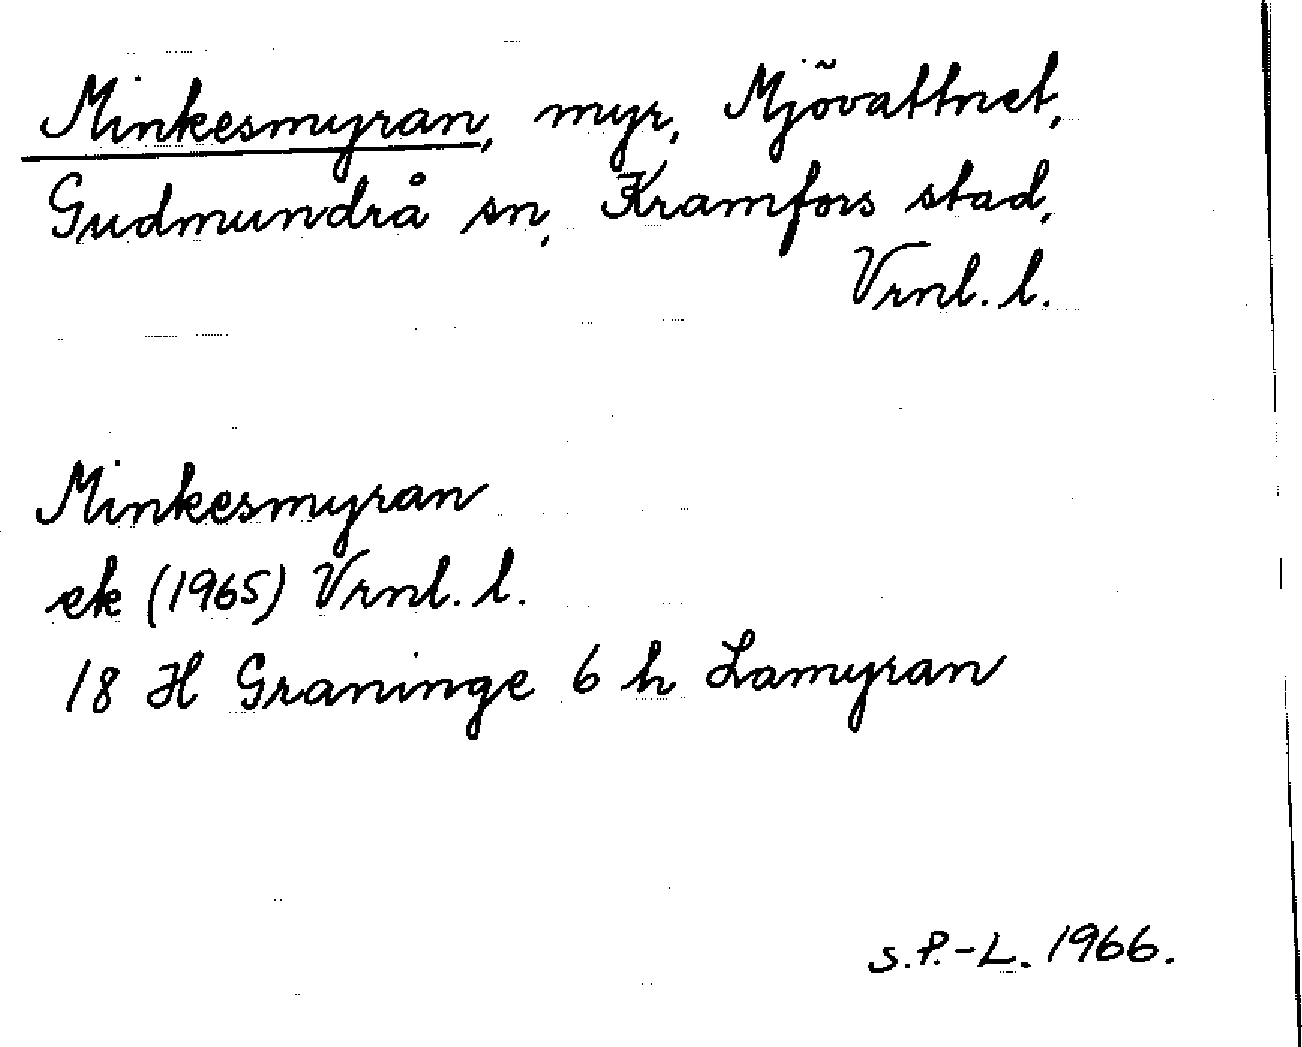 Minkesmyran, myr, Mjövattnet,
Gudmundrå sn, Kramfors stad,
Vrnl. l.
Minkesmyran
ek (1965) Vrnl. l.
18 H Graninge 6 h Lamyran
S.P.-L. 1966.